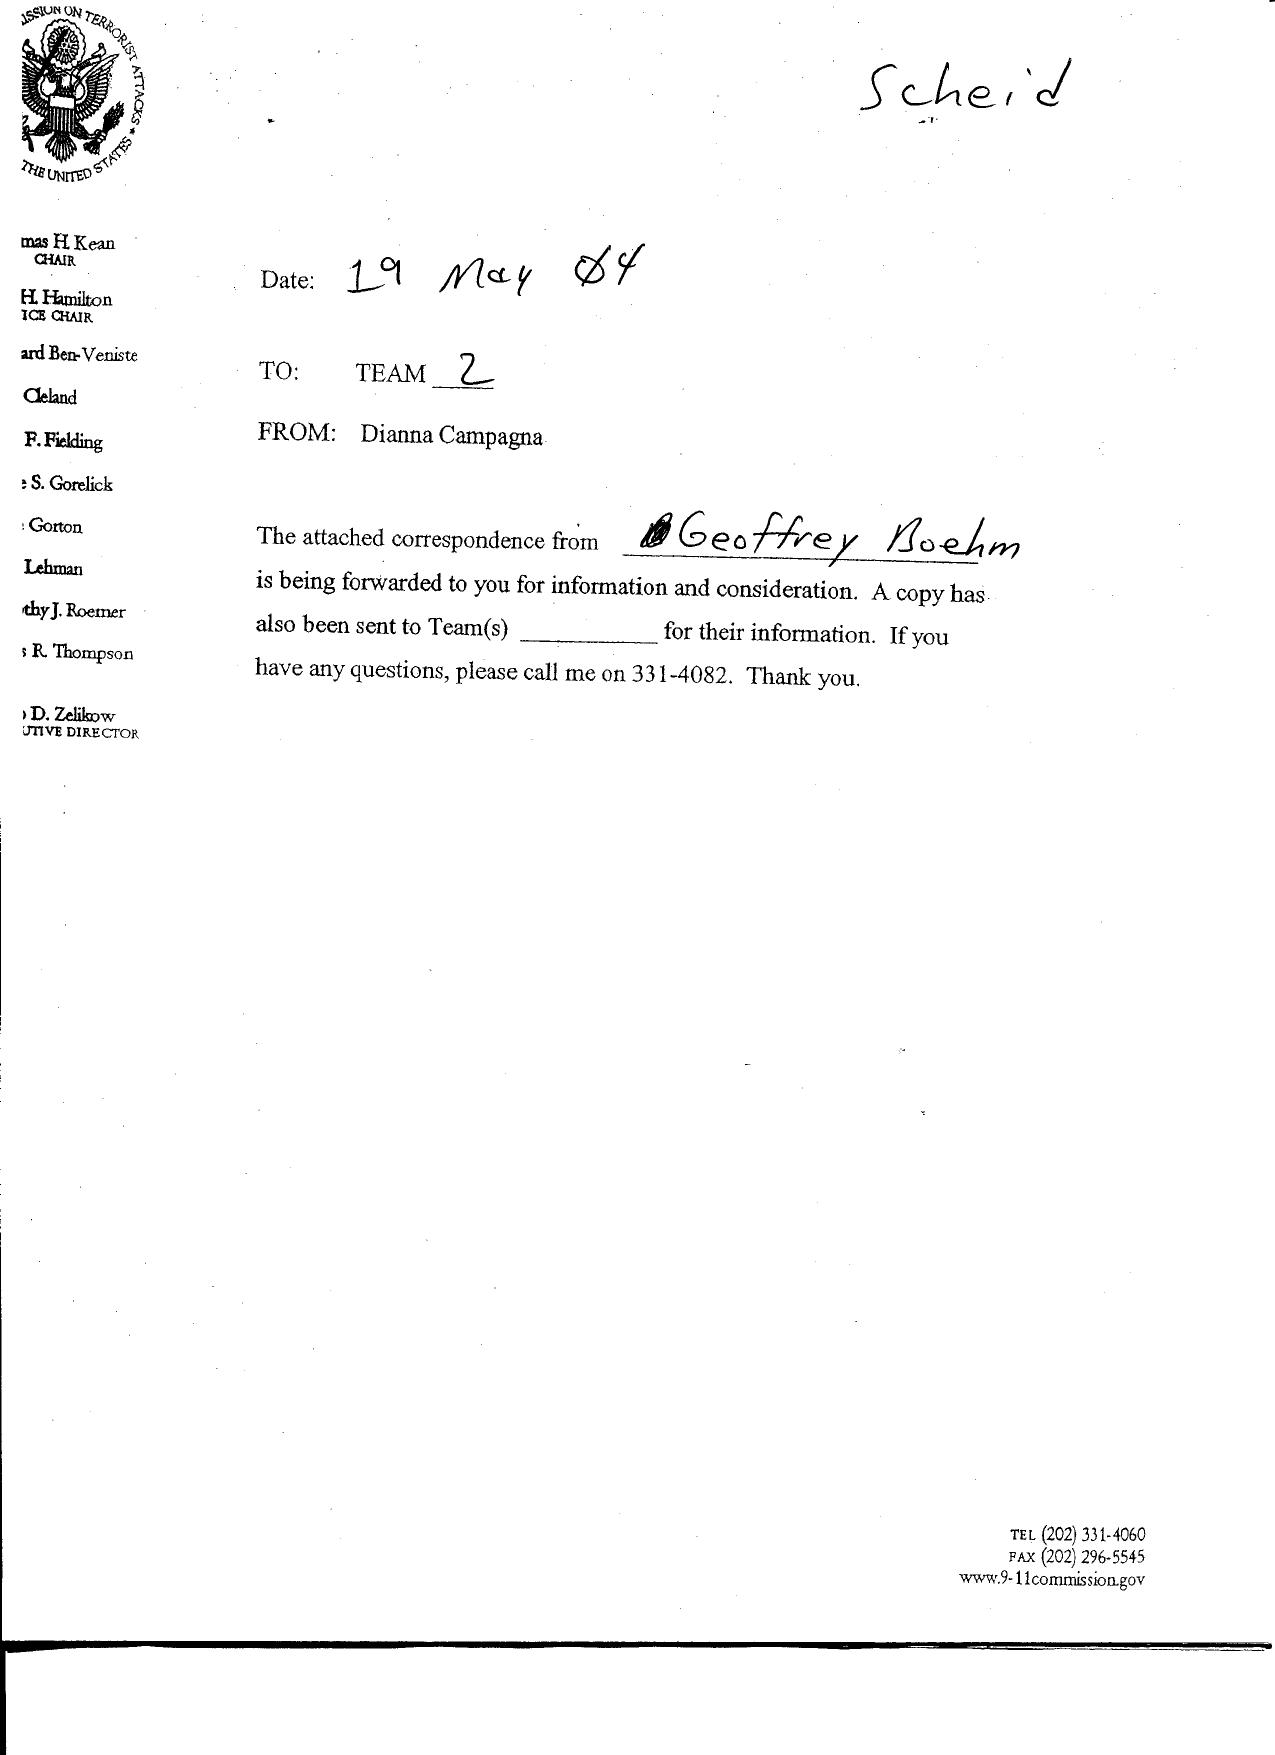 ISSION ON TERRORIST ATTACKS ★
THE UNITED STATES
Scheid
mas H. Kean
CHAIR
H. Hamilton
ICE CHAIR
ard Ben-Veniste
Cleland
F. Fielding
S. Gorelick
Gorton
Lehman
thy J. Roemer
s R. Thompson
D. Zelikow
UTIVE DIRECTOR
Date: 19 May 04
TO: TEAM 2
FROM: Dianna Campagna
The attached correspondence from Geoffrey Boehm
is being forwarded to you for information and consideration. A copy has
also been sent to Team(s) __________ for their information. If you
have any questions, please call me on 331-4082. Thank you.
TEL (202) 331-4060
FAX (202) 296-5545
www.9-11commission.gov